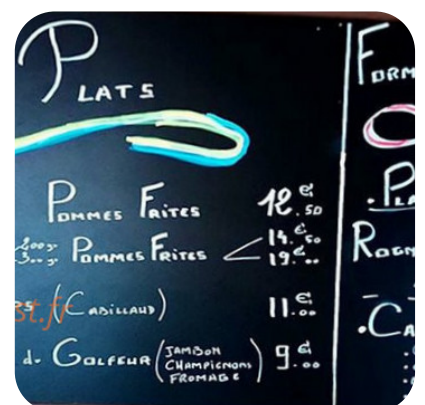 PLATS
POMMES FRITES 12.€50
200gr POMMES FRITES 14.€50
300gr 19.€00
st.fr (CABILLAUD) 11.€00
du GOLFEUR (JAMBON CHAMPIGNONS FROMAGE) 9.€00
FORM
.PLA
ROGN
.CA